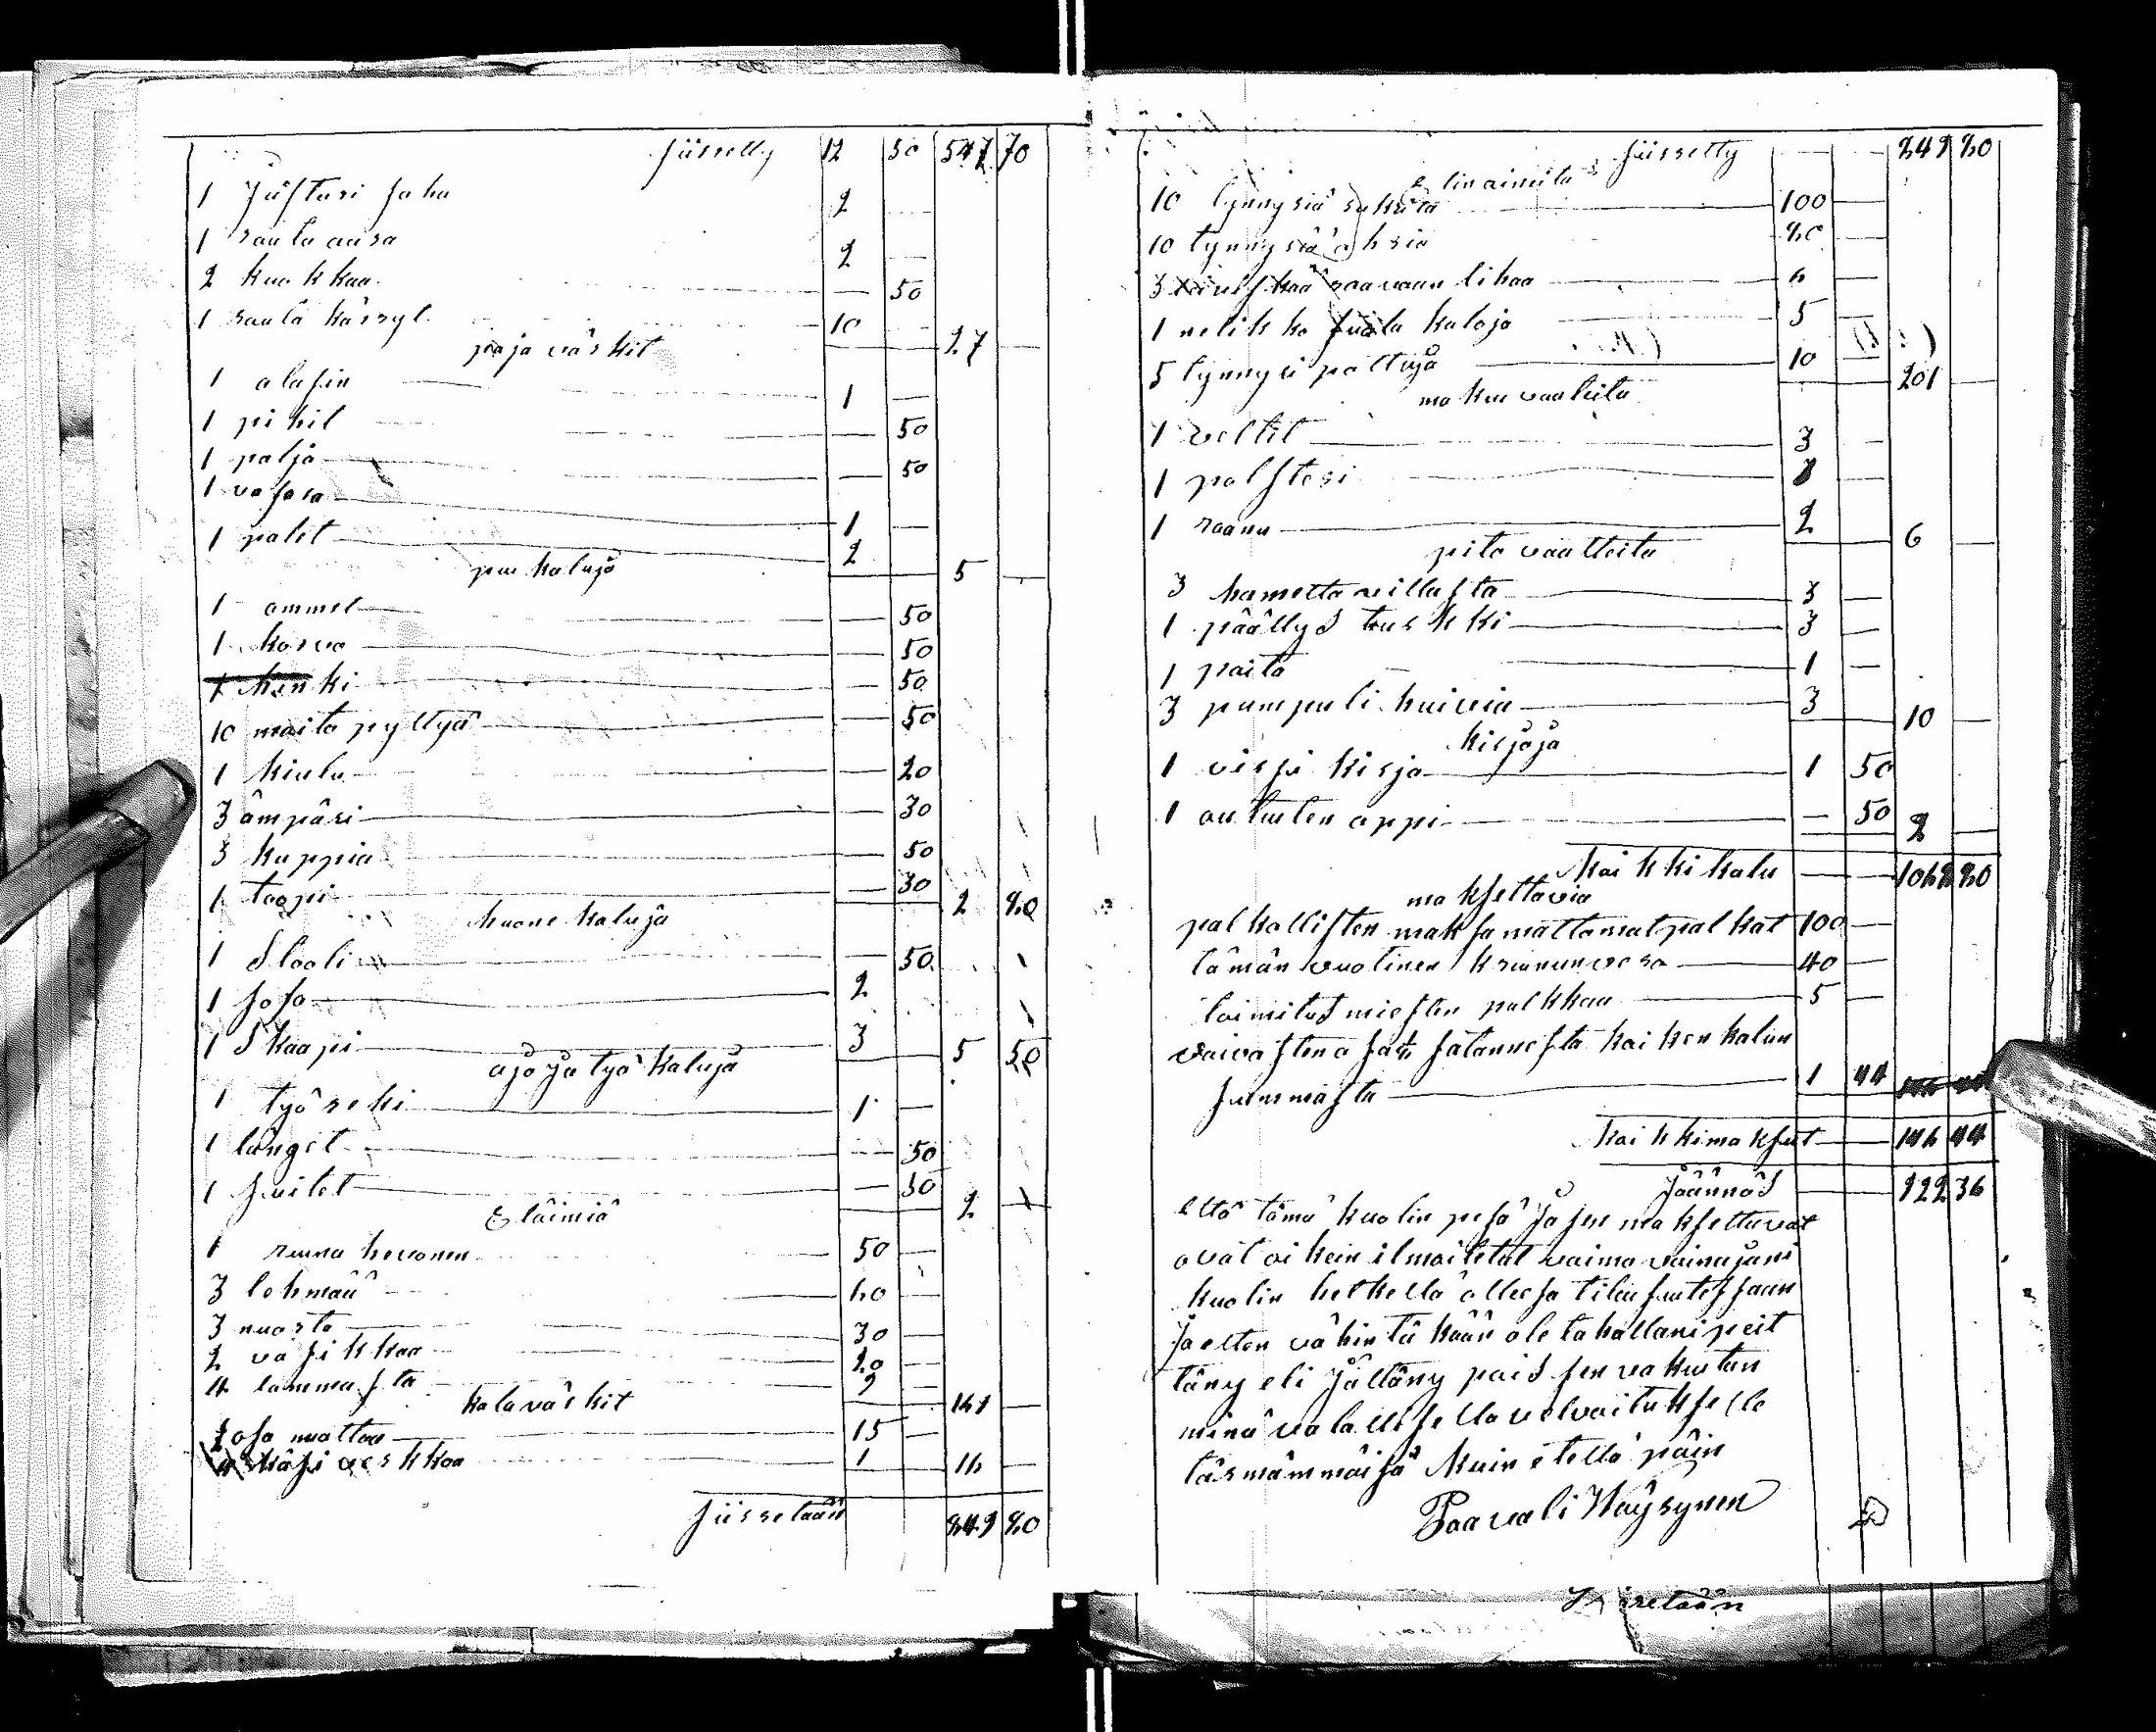 siirretty 12 50 547 70
1 Justuri saha 2 —
1 rauta aura 2 —
2 kuokkaa — 50
1 rauta kärryt 10 — 27 —
paja värkit
1 alasin 1 —
1 pihit — 50
1 palja — 50
1 vasara 1 —
1 palet 2 5 —
puu kaluja
1 ammet — 50
1 korvo — 50
1 kenki — 50
10 maito pyttyä — 50
1 kiulu — 20
3 ämpäri — 30
3 kuppia — 50
1 tooppi — 30 2 80
huone kaluja
1 Stooli — 50
1 sofa 2
1 Skaapi 3 5 50
ajo ja työ kaluja
1 työ reki 1 —
1 länget — 50
1 suitet — 50 2 —
Eläimiä
1 ruuna hevonen 50 —
3 lehmää 60 —
3 nuorta 30 —
2 vasikkaa 20 —
4 lammasta 9 — 161 —
kala värkit
osa nuottaa 15 —
4 käsi verkkoa 1 16 —
siirretään 849 80
siirretty 849 80
elinaineita
10 tynnyriä rukiita 100 —
10 tynnyriä ohria 80 —
3 leiviskää raavaan lihaa 6 —
1 nelikko suola kaloja 5 —
5 tynnyri pottuja 10 — 201 —
makuu vaateita
1 veltit 3 —
1 polsteri 1 —
1 raanu 2 6 —
pito vaatteita
3 hametta villasta 3 —
1 päällys turkki 3 —
1 paita 1 —
3 pumpuli huivia 3 10 —
kirjoja
1 virsi kirja 1 50
1 autuuten oppi — 50 2 —
kaikki kalu 1068 80
maksettavia
palkollisten maksamattomat palkat 100 —
tämän vuotinen kruununvero 40 —
toimitus miesten palkkaa 5 —
vaivasten osa satannesta kaiken kalun
summasta 1 44
kaikki maksut 146 44
Jäännös 922 36
että tämä kuolin pesä ja sen maksettavat
ovat oikein ilmoitetut vaimo vainajani
kuolin hetkellä ollessa tilaisuutessaan
ja etten vähintäkään ole tahallani peit
täny eli jättäny pois sen vakuutan
minä valallisella velvoituksella
täsmämmäisä kuin etellä päin
Paavali Häyrynen
siiretään